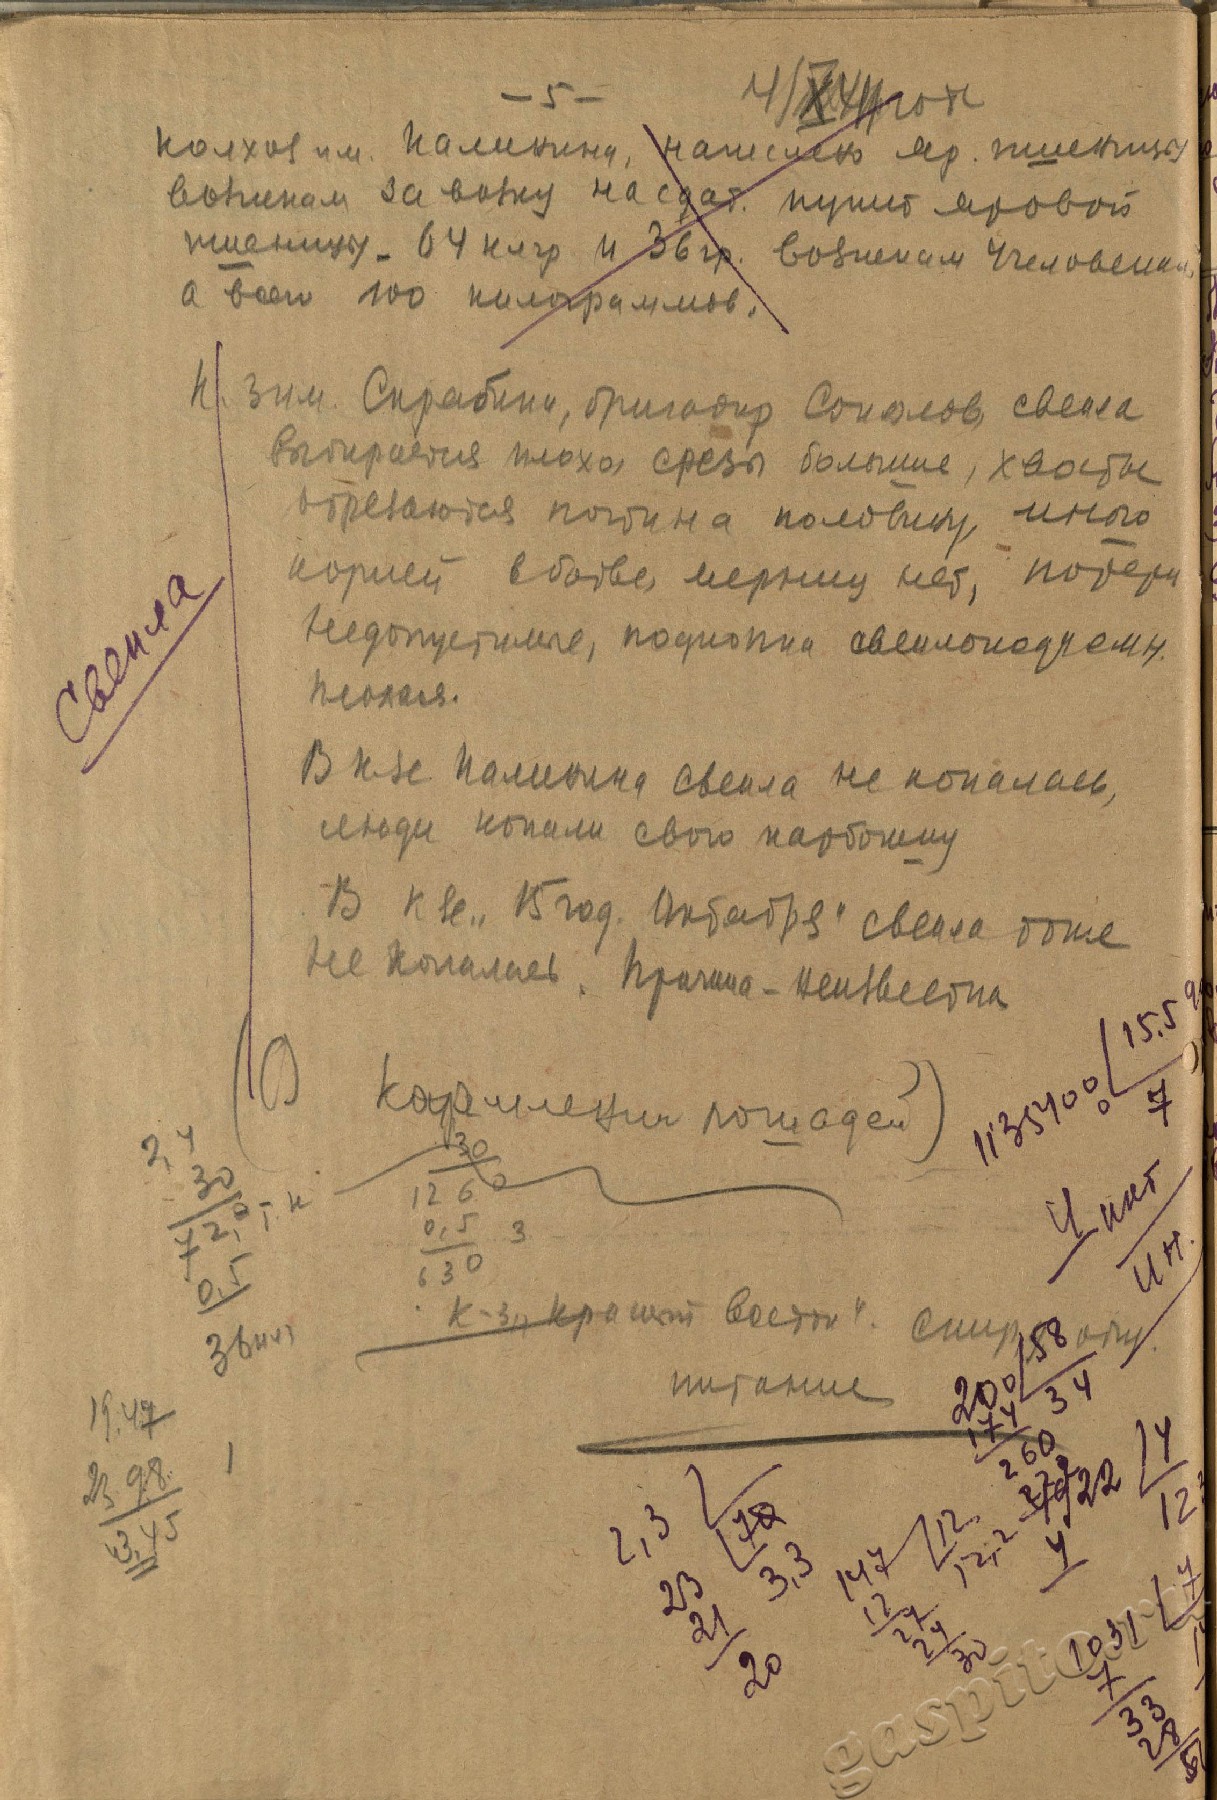 – 5 –
4/X 44 год
колхоз им. Калинина, начислено яр. пшеницы
возчикам за возку на сдат. пункт яровой
пшеницы – 64 клгр и 36 гр. возчикам 4 человекам,
а всего 100 килограммов.
К. з им. Скрябина, бригадир Соколов, свекла
выбирается плохо, срезы большие, хвосты
отрезаются почти на половину, много
корней в ботве, мерки нет, потери
недопустимые, подкопка свеклоподъемн.
плохая.
Свекла
В к-зе Калинина свекла не копалась,
люди копали свою картошку
В к-зе „15 год. Октября" свекла тоже
не копалась. Причина – неизвестна
(О кормлении лошадей)
2,4
30
72,0 т.к
0,5
36
30
1260
0,5 3
630
К-з „Красный Восток".
питание
19.47
23 98
43,45
1135400 15.5
7
4
200 58
174 34
260
2,3 7
23 3,3
21
20
147 12
12 12,2
27
24
30
4922 4
4 123
1031 7
7
33
28
gaspito.ru